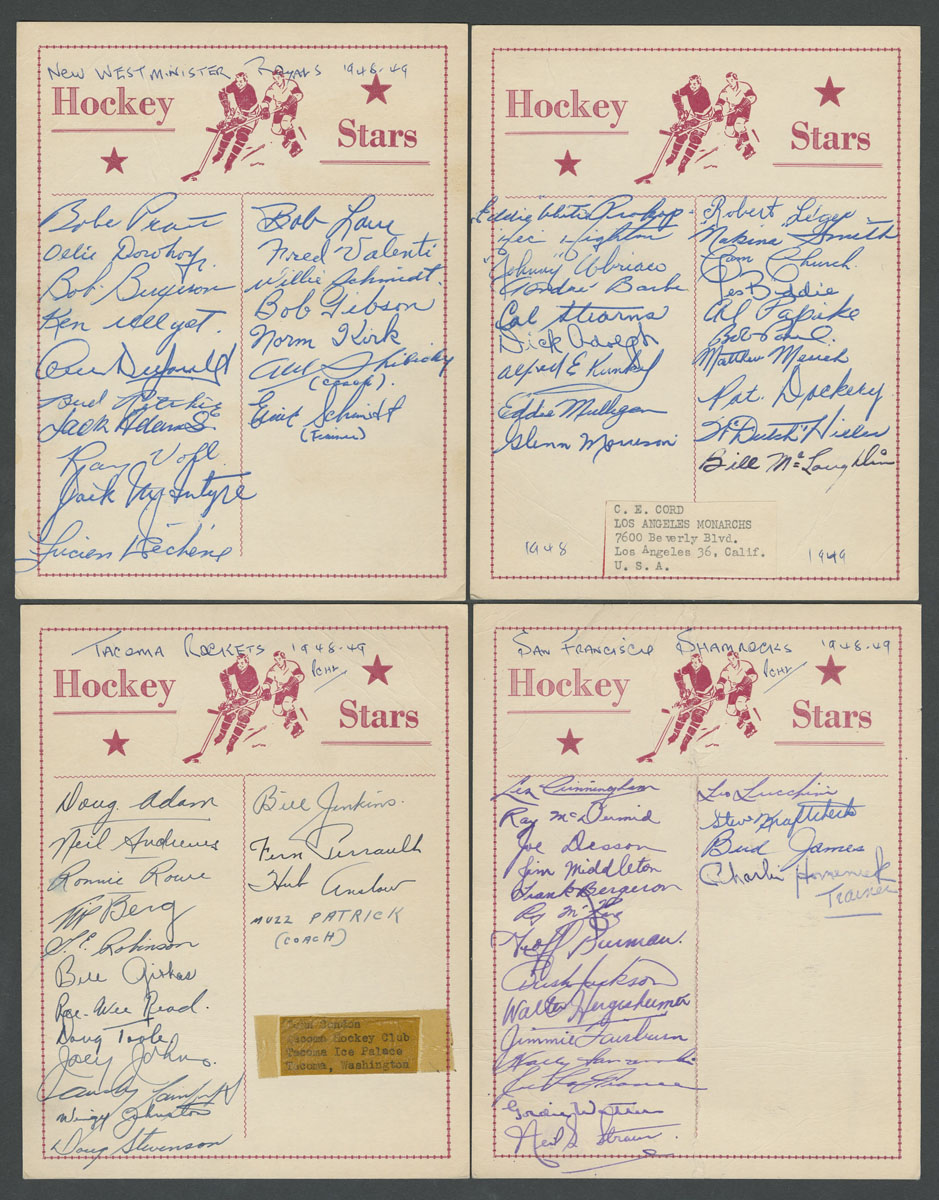 New Westminister Royals 1948-49
Hockey
Stars
Babe Pratt
Odie Dowhoy
Bob Bergeron
Ken Ullyot.
Bud Ritchie
Jack Adams
Ray Vogl
Jack McIntyre
Lucien Dechene
Bob Love
Fred Valenti
Willie Schmidt.
Bob Gibson
Norm Kirk
Alex Shibicky
(coach).
Schmidt
(Trainer)
Hockey
Stars
Eddie
Johnny Ubriaco
Andre Barbe
Cal Stearns
Dick Adolph
Alfred E Kunkel
Eddie Mulligan
Glenn Morrison
Robert Leger
Nakina Smith
Church
Les Biddie
Al Papike
Bob
Matthew
Pat. Dockery
"Dutch" Hiller
Bill McLaughlin
C. E. CORD
LOS ANGELES MONARCHS
7600 Beverly Blvd.
Los Angeles 36, Calif.
U. S. A.
1948
1949
Tacoma Rockets 1948-49
PCHL
Hockey
Stars
Doug Adam
Neil Andrews
Ronnie Rowe
Berg
Robinson
Bill
Pee-Wee Read.
Doug Toole
Joey Johns
Wingy Johnston
Doug Stevenson
Bill Jenkins.
Fern Perreault
Hub Anslow
MUZZ PATRICK
(COACH)
Tacoma Hockey Club
Tacoma Ice Palace
Tacoma, Washington
San Francisco Shamrocks 1948-49
PCHL
Hockey
Stars
Les Cunningham
Ray McDermid
Joe Desson
Jim Middleton
Frank Bergeron
Geoff Burman.
Jackson
Walter Hergesheimer
Jimmie Fairburn
Gordie Watten
Neil Strain.
Leo Lucchini
Steve Kraftcheck
Bud James
Charlie Homenick
Trainer